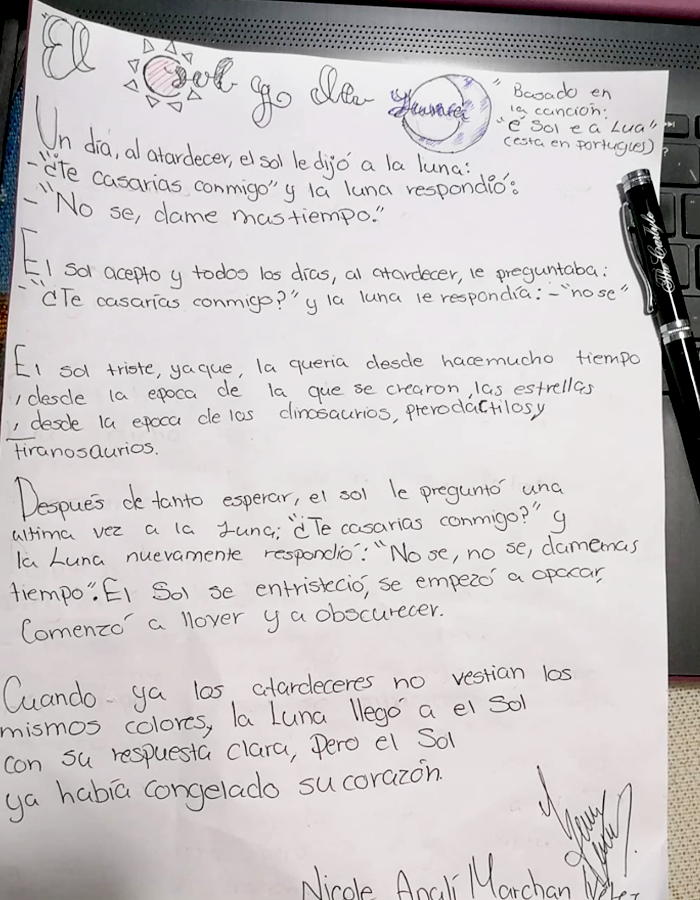 "El sol y la luna"
Basado en
la canción:
"é Sol e a Lua"
(esta en portugues)
Un día, al atardecer, el sol le dijó a la luna:
-"¿Te casarías conmigo" y la luna respondió:
-"No se, dame mas tiempo."
El sol acepto y todos los días, al atardecer, le preguntaba:
-"¿Te casarías conmigo?" y la luna le respondía: -"no se"
El sol triste, ya que, la queria desde hace mucho tiempo
, desde la epoca de la que se crearon, las estrellas
, desde la epoca de los dinosaurios, pterodáctilos y
tiranosaurios.
Después de tanto esperar, el sol le preguntó una
ultima vez a la Luna; "¿Te casarias conmigo?" y
la Luna nuevamente respondió: "No se, no se, dame mas
tiempo". El Sol se entristeció, se empezó a opacar,
Comenzó a llover y a obscurecer.
Cuando ya los atardeceres no vestian los
mismos colores, la Luna llegó a el Sol
con su respuesta clara, Pero el Sol
ya había congelado su corazón.
Nicole Analí Marchan
The Carlyle